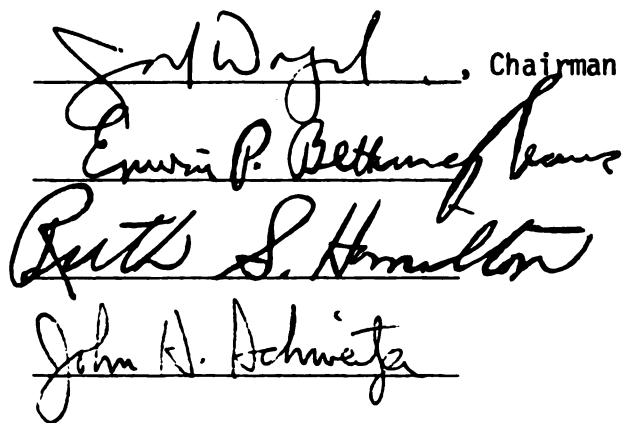 , Chairman
Erwin P. Bettinghaus
Ruth S. Hamilton
John H. Schweitzer